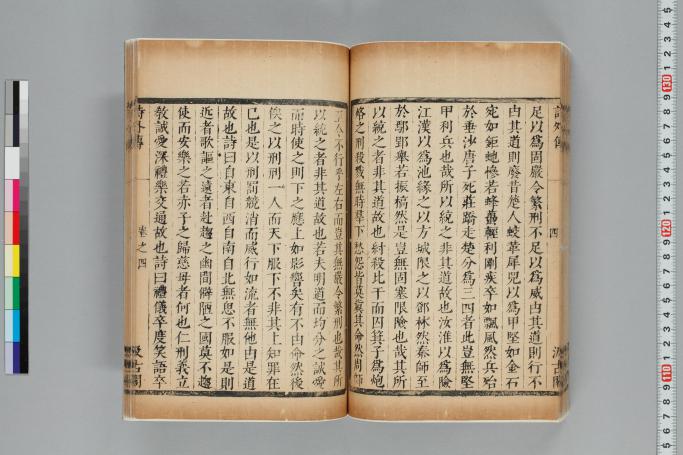 足以爲固嚴令繁刑不足以爲威由其道則行不
由其道則廢昔楚人蛟革犀兕以爲甲堅如金石
宛如鉅蛇慘若蜂蠆輕利剛疾卒如飄風然兵殆
於垂沙唐子死莊蹻走楚分爲三四者此豈無堅
甲利兵也哉所以統之非其道故也汝淮以爲險
江漢以爲池緣之以方城限之以鄧林然秦師至
於鄢郢舉若振槁然是豈無固塞限險也哉其所
以統之者非其道故也紂殺比干而囚箕子爲炮
烙之刑殺戮無時羣下愁怨皆莫冀其命然周師
至令不行乎左右而豈其無嚴令繁刑也哉其所
以統之者非其道故也若夫明道而均分之誠愛
而時使之則下之應上如影響矣有不由命然後
俟之以刑刑一人而天下服下不非其上知罪在
己也是以刑罰競消而威行如流者無他由是道
故也詩曰自東自西自南自北無思不服如是則
近者歌謳之遠者赴趨之幽閒僻陋之國莫不趨
使而安樂之若赤子之歸慈母者何也仁刑義立
敎誠愛深禮樂交通故也詩曰禮儀卒度笑語卒
詩外傳
卷之四
汲古閣